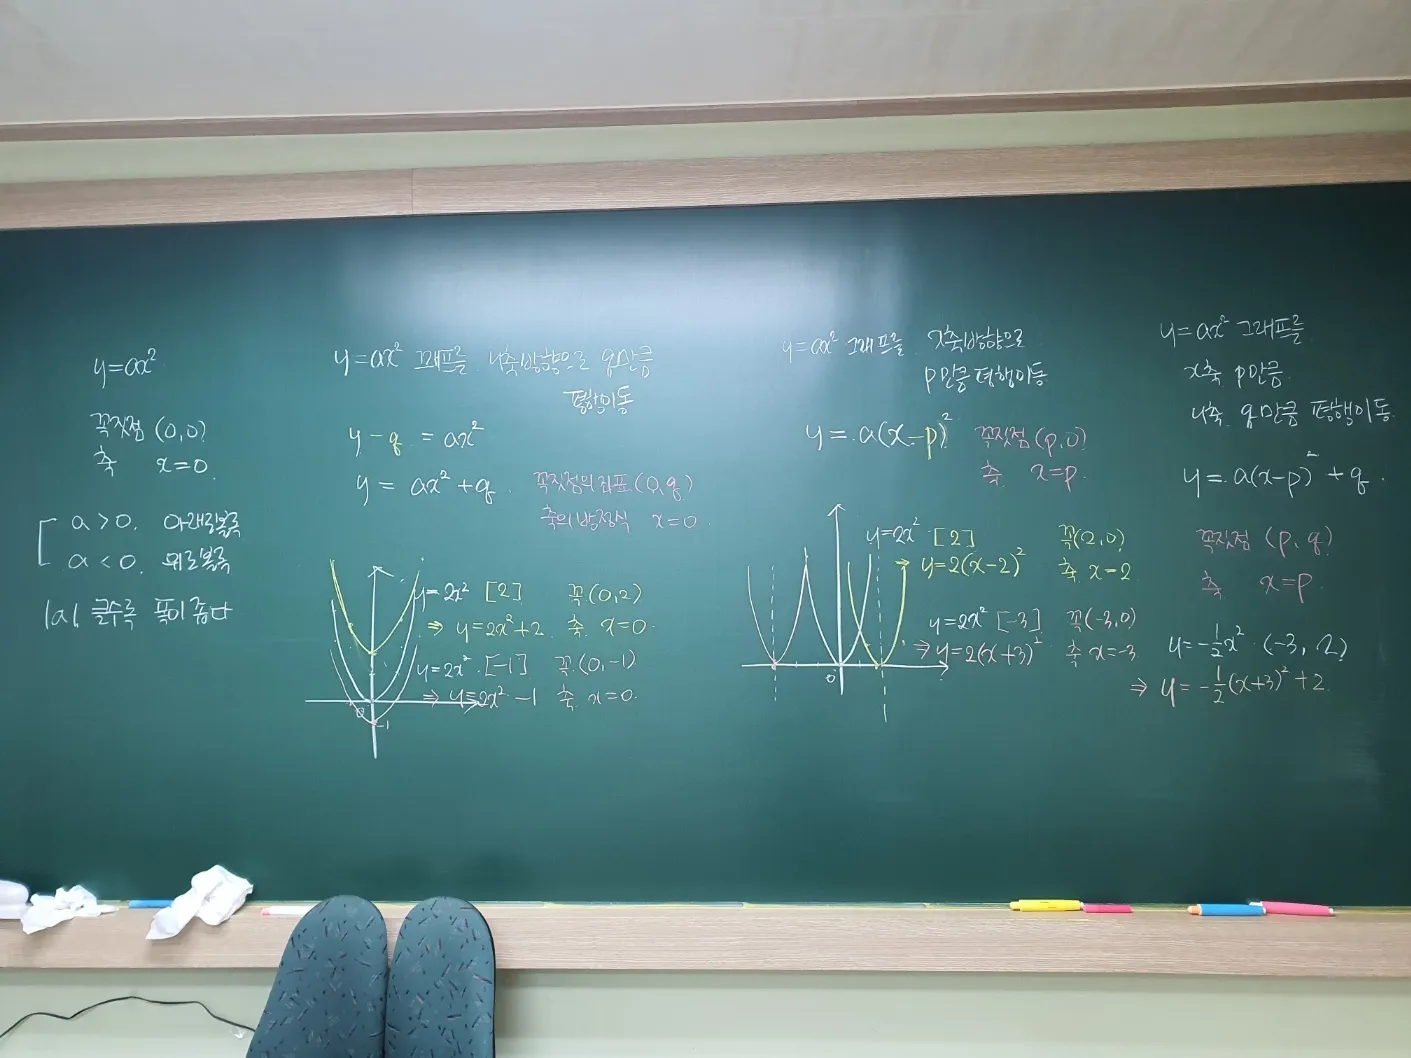 y=ax²
꼭짓점 (0,0)
축 x=0.
a>0. 아래로볼록
a<0. 위로볼록
|a| 클수록 폭이 좁다
y=ax² 그래프를 y축방향으로 q만큼
평행이동
y-q = ax²
y = ax²+q.
꼭짓점의 좌표 (0,q)
축의 방정식 x=0.
y=2x² [2] 꼭(0,2)
⇒ y=2x²+2. 축. x=0.
y=2x² [-1] 꼭(0,-1)
⇒ y=2x²-1 축. x=0.
0
-1
y=ax² 그래프를 x축방향으로
p만큼 평행이동
y=a(x-p)²
꼭짓점(p,0)
축 x=p.
y=2x² [2] 꼭(2,0)
⇒ y=2(x-2)² 축. x=2
y=2x² [-3] 꼭(-3,0)
⇒ y=2(x+3)² 축 x=-3
0
y=ax² 그래프를
x축 p만큼.
y축 q만큼 평행이동.
y=a(x-p)²+q.
꼭짓점 (p,q)
축 x=p.
y=-1/2x² (-3, 2)
⇒ y=-1/2(x+3)²+2.